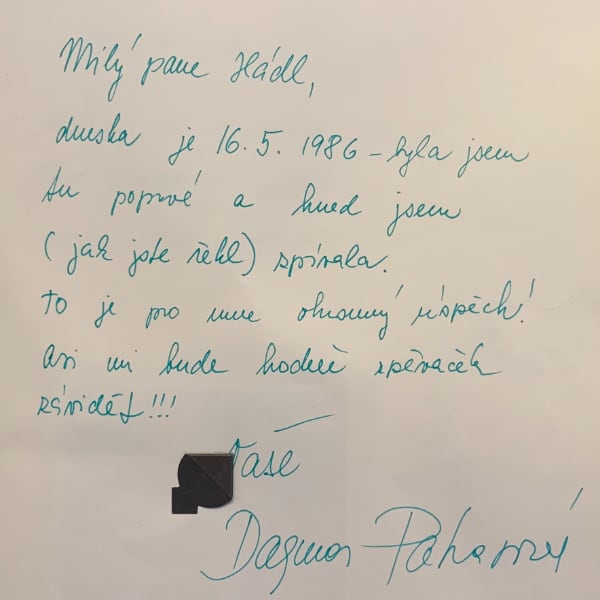 Milý pane Hádl,
dneska je 16. 5. 1986 – byla jsem
tu poprvé a hned jsem
(jak jste řekl) zpívala.
To je pro mne ohromný úspěch!
Asi mi bude hodně zpěvaček
závidět!!!
Vaše
Dagmar